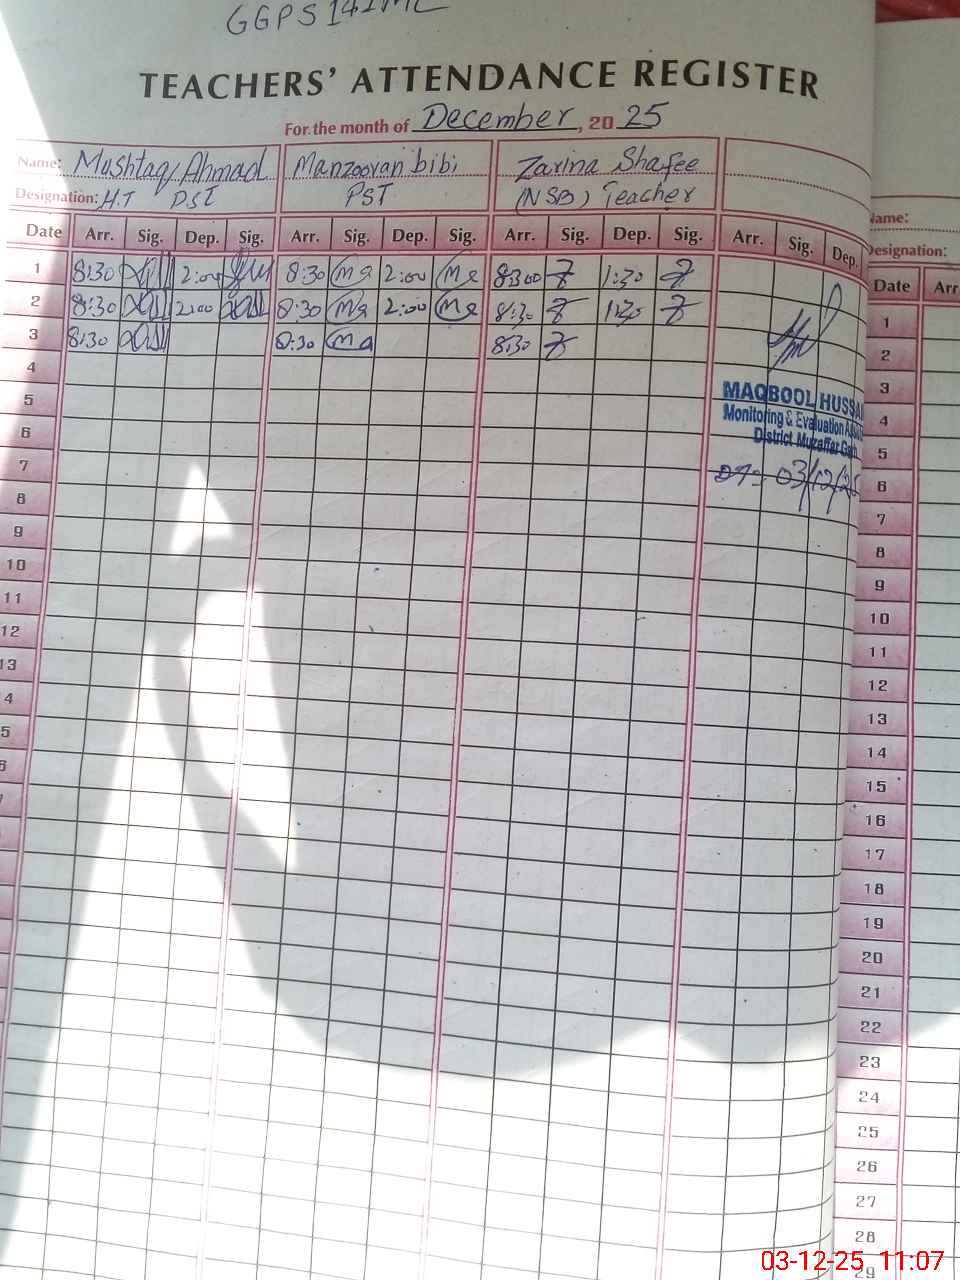 GGPS 141ML
TEACHERS' ATTENDANCE REGISTER
For the month of December, 20 25
Name: Mushtaq Ahmad Manzooran bibi Zarina Shafee
Designation: H.T PST PST (NSB) Teacher
Date Arr. Sig. Dep. Sig. Arr. Sig. Dep. Sig. Arr. Sig. Dep. Sig. Arr. Sig. Dep.
1 8:30 2:00 8:30 2:00 8:30 1:30
2 8:30 2:00 8:30 2:00 8:30 1:30
3 8:30 8:30 8:30
4
5
6
7
8
9
10
11
12
13
4
5
MAQBOOL HUSSA
Monitoring & Evaluation
District Muzaffar Gar
03/12/2
Name:
Designation:
Date Arr
1
2
3
4
5
6
7
8
9
10
11
12
13
14
15
16
17
18
19
20
21
22
23
24
25
26
27
28
29
03-12-25 11:07